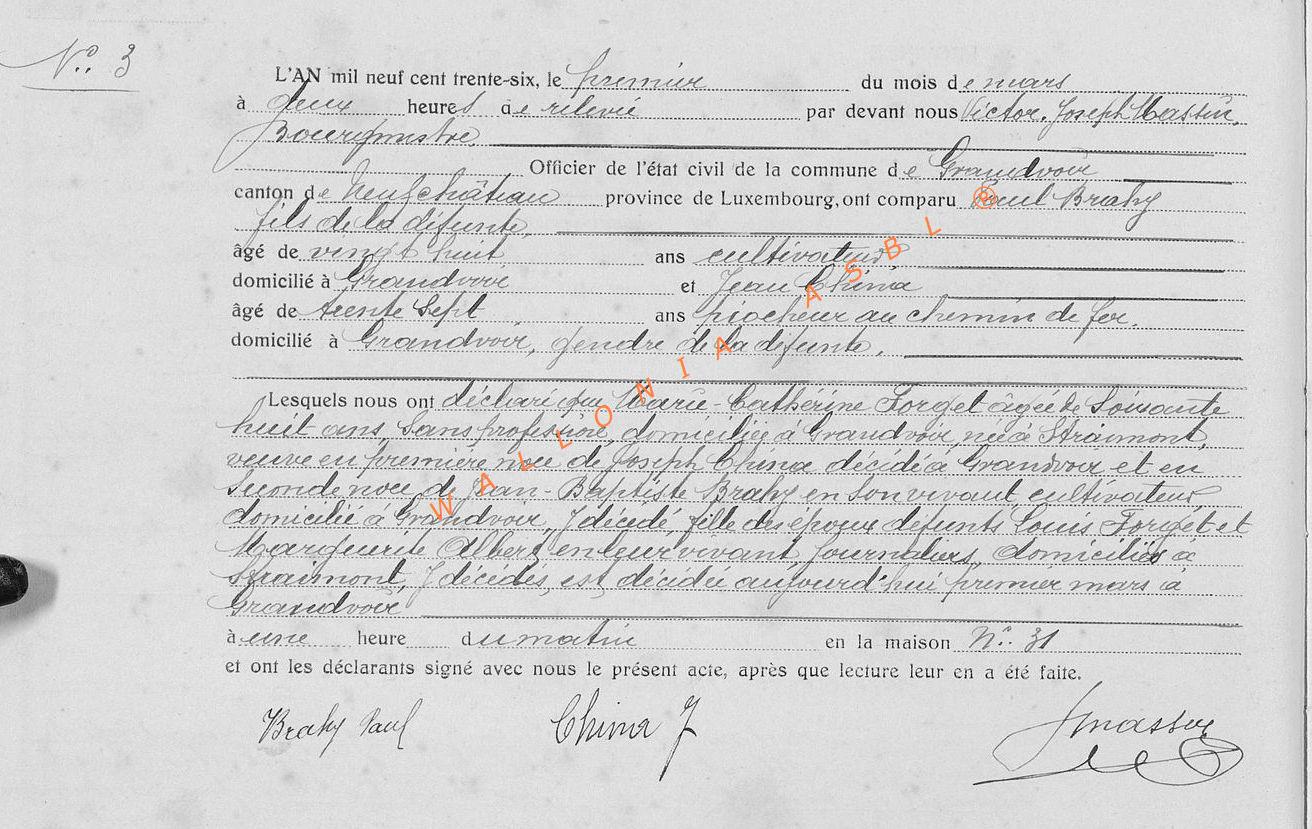 N° 3
L'AN mil neuf cent trente-six, le premier du mois de mars
à deux heures de relevée par devant nous Victor-Joseph Massin,
Bourgmestre
Officier de l'état civil de la commune de Grandvoir
canton de Neufchâteau province de Luxembourg, ont comparu Paul Brahy
fils de la défunte,
âgé de vingt huit ans cultivateur
domicilié à Grandvoir et Jean China
âgé de trente sept ans piocheur au chemin de fer,
domicilié à Grandvoir, gendre de la défunte,
Lesquels nous ont déclaré que Marie-Cathérine Forget âgée de Soixante
huit ans, Sans profession, domiciliée à Grandvoir, née à Straimont,
veuve en première noce de Joseph China décédé à Grandvoir et en
Seconde noce de Jean-Baptiste Brahy en son vivant cultivateur
domicilié à Grandvoir, y décédé, fille des époux défunts Louis Forget et
Marguerite Albert, en leur vivant journaliers, domiciliés à
Straimont, y décédés, est décédée aujourd'hui premier mars à
Grandvoir
à une heure du matin en la maison N° 31
et ont les déclarants signé avec nous le présent acte, après que lecture leur en a été faite.
Brahy Paul China J Massin
WALLONIA ASBL ®